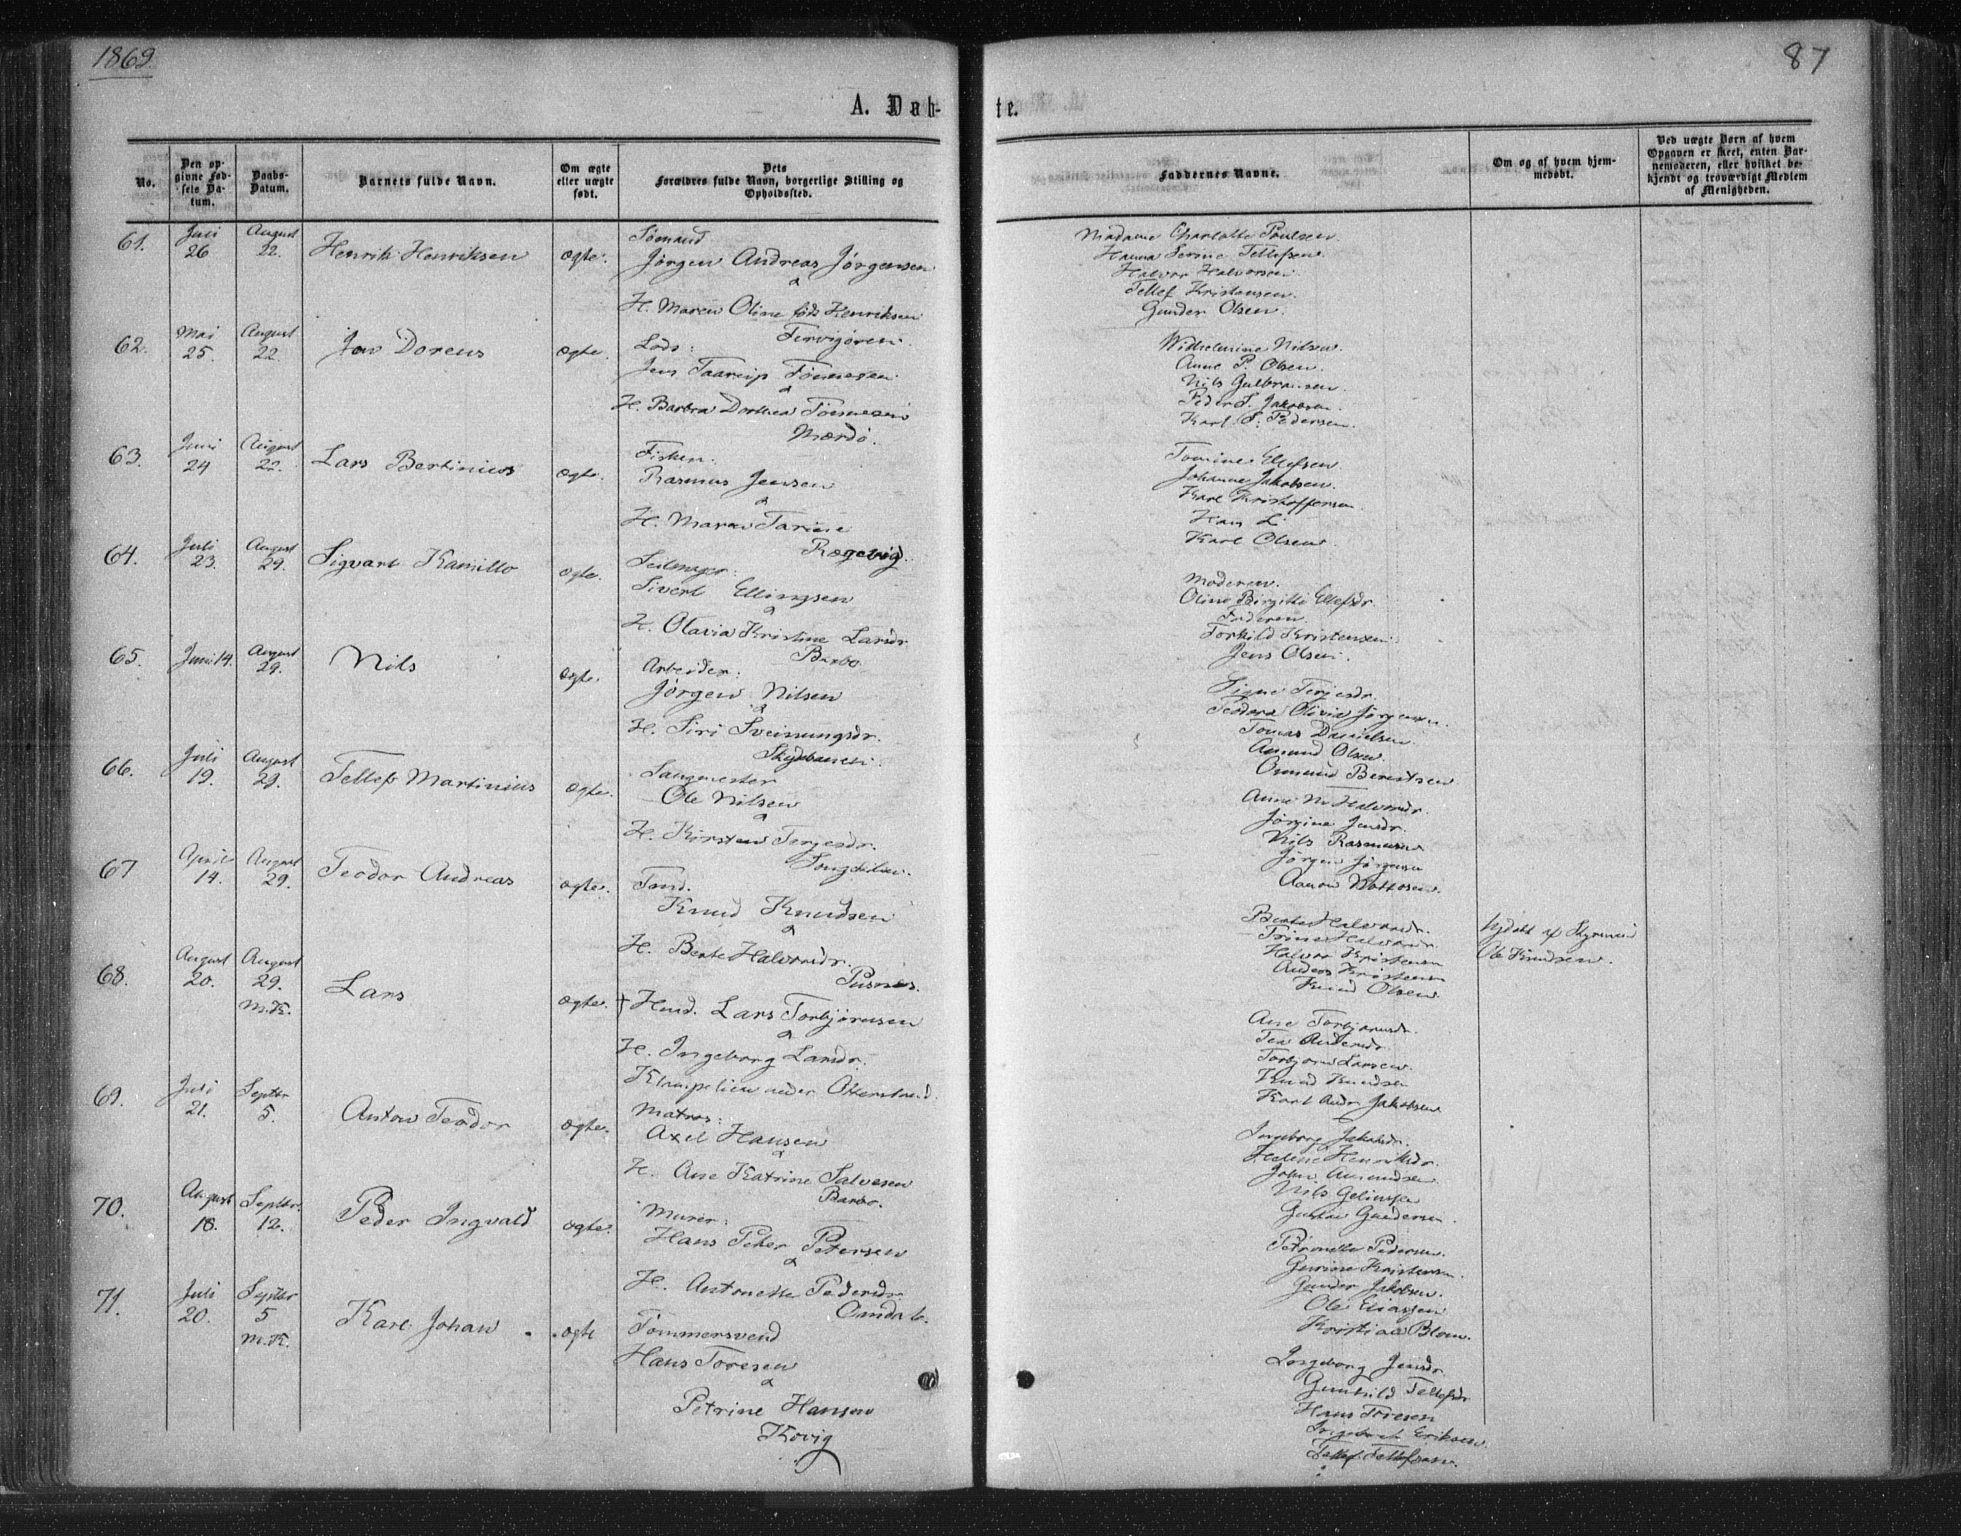 1869.
87
A. Døb-
te.
No.
Den op-
givne Fød-
sels Da-
tum.
Daabs-
Datum.
Barnets fulde Navn.
Om ægte
eller uægte
født.
Dets
Forældres fulde Navn, borgerlige Stilling og
Opholdssted.
Faddernes Navne.
Om og af hvem hjem-
medøbt.
Ved uægte Børn af hvem
Opgaven er skeet, enten Bar-
nemoderen, eller hvilket be-
kjendt og troværdigt Medlem
af Menigheden.
61.
Juni
26
August
22.
Henrik Henriksen
ægte.
Sømand
Jørgen Andreas Jørgensen
&
H. Maren Oline født Henriksen
Madame Charlotte Poulsen.
Hanna Serine Tellefsen
Halvor Halvorsen
Tellef Kristensen.
Gunder Olsen.
62.
Mai
25.
August
22.
Dorens
ægte.
Lods:
Jens Taarup Tønnesen
&
H. Barbra Dorthea Tønnesen
Mærdø.
Wilhelmine Nilsen.
Anne P. Olsen.
Nils Gulbransen.
Peder T. Jakobsen
Karl S. Pedersen.
63.
Juni
24
August
22.
Lars Bertinius
ægte.
Fisker.
Rasmus Jensen
&
H. Maren Tarine
Rægevig.
Tomine Ellefsen
Johanne Jakobsen.
Karl Kristoffersen
Hans L
Karl Olsen.
64.
Juli
23.
August
29.
Sigvart Kamillo
ægte.
Seilmager.
Sivert Ellingsen
&
H. Olavia Kristine Larsdr
Barbo
Moderen.
Oline Birgitte Ellefsdr.
Faderen
Torkild Kristensen
Jens Olsen.
65.
Juni 14.
August
29.
Nils
ægte.
Arbeider.
Jørgen Nilsen
&
H. Siri Sveinungsdr.
Signe Terjesdr.
Teodora Olivia Jørgensen.
Tomas Danielsen
Amund Olsen
Osmund Berntsen
66.
Juli
19.
August
29.
Tellef Martinius
ægte.
Saugmester
Ole Nilsen
&
H. Kirsten Terjesdr.
Anne M. Halvorsdr.
Jørgine Jensdr.
Nils Rasmusen
Jørgen Jørgensen
67
April
14.
August
29.
Teodor Andreas
ægte.
Tmd.
Knud Knudsen
&
H. Berte Halvorsdr.
Pusnes.
Berte Halvorsdr.
Trine Halvorsdr.
Halvor Kristensen
Anders Kristensen
Knud Olsen
Ole Knudsen.
68.
August
20.
August
29.
M.K.
Lars
ægte.
+ Hmd. Lars Torbjørnsen
&
H. Ingeborg Larsdr.
Ane Torbjørnsdr.
Tea Andersdr.
Torbjørn Larsen.
Knud Knudsen
Karl Andr. Jakobsen
69.
Juli
21.
Septbr
5.
Anton Teodor
ægte.
Matros:
Axel Hansen
&
H. Ane Katrine Salvesen
Barbo.
Ingeborg Jakobsdr.
Helene Henriksdr.
John Amundsen
Nils
Gustav Gundersen.
70.
August
18.
Septbr.
12.
Peder Ingvald
ægte.
Murer:
Hans Peter Petersen
&
H. Antonette Pedersdr.
Petronelle Pedersen.
Gurine Kristensen
Gunder Jakobsen.
Ole Eliassen
Kristian Blom.
71.
Juli
20.
Septbr
5
M.K.
Karl Johan
ægte
Tømmersvend
Hans Toresen
&
Petrine Hansen
Kovig
Ingeborg Jensdr
Gunhild Tellefsdr
Hans Toresen
Ingebret Eriksen.
Tellef Tellefsen.